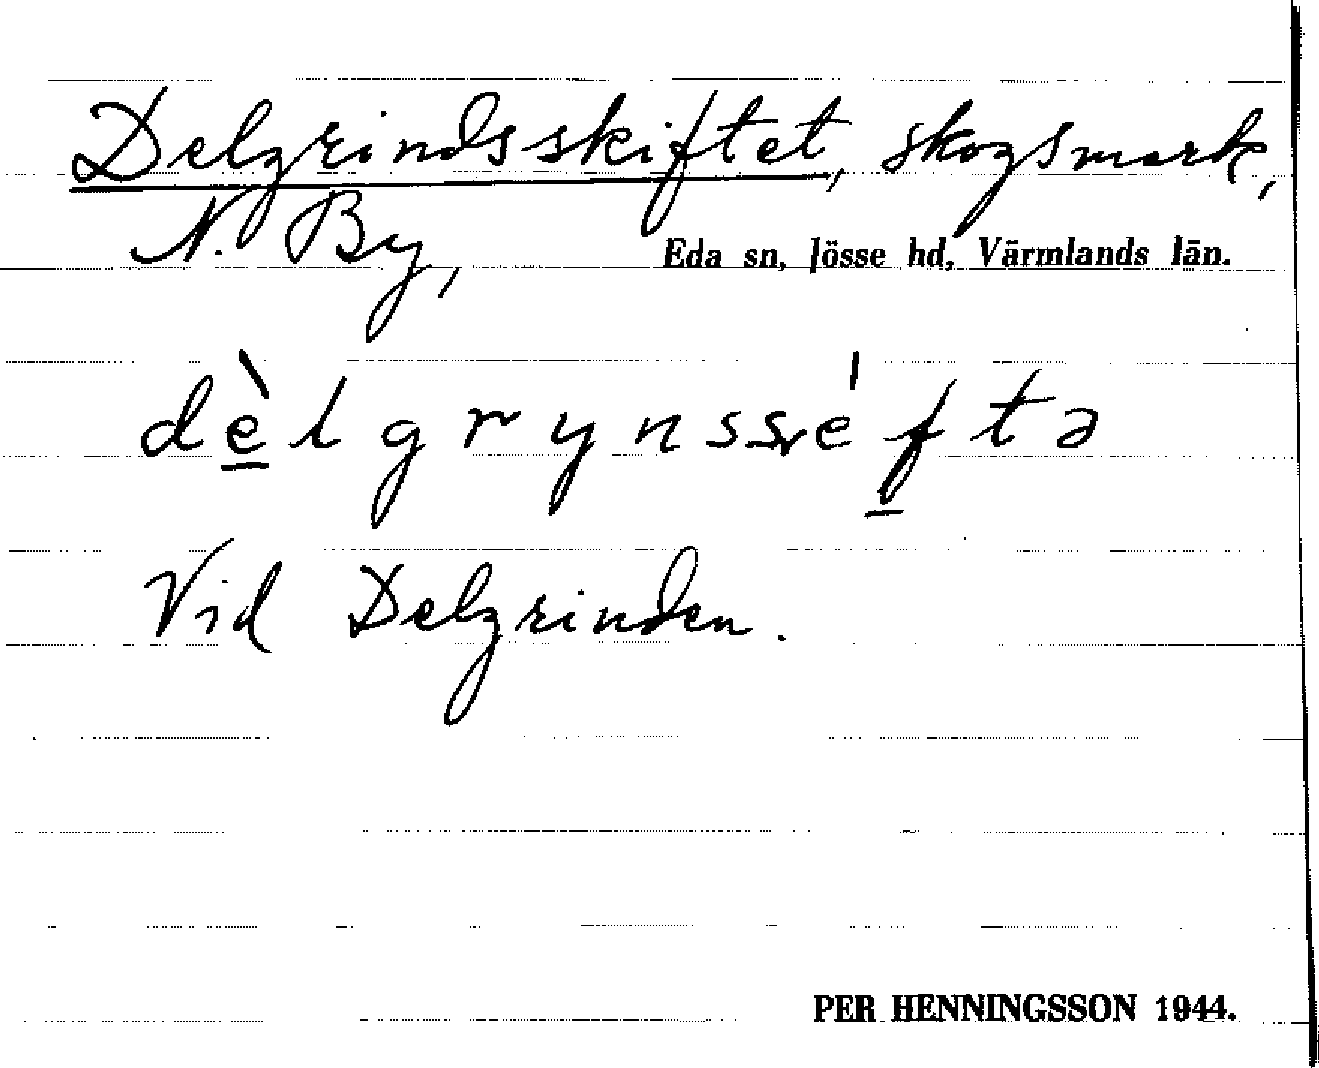 Delgrindsskiftet, skogsmark,
N. By,
Eda sn, Jösse hd, Värmlands län.
dèlgrynsséftə
Vid Delgrinden.
PER HENNINGSSON 1944.